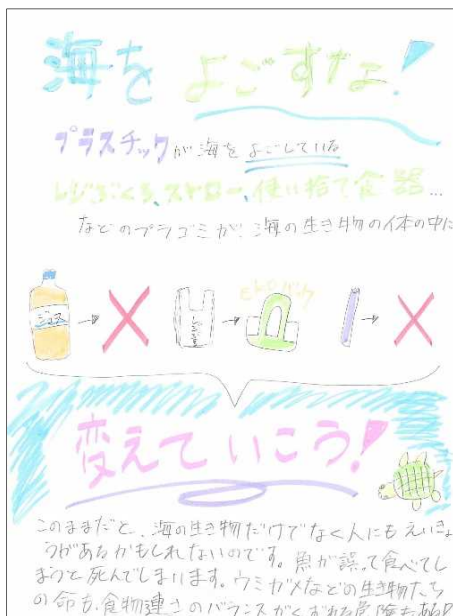 海をよごすな！
プラスチックが海をよごしている
レジぶくろ、ストロー、使い捨て食器…
などのプラゴミが、海の生き物の体の中に
ジュース
変えていこう！
このままだと、海の生き物だけでなく人にもえいきょ
うがあるかもしれないのです。魚が誤って食べてし
まうと死んでしまいます。ウミガメなどの生き物たち
の命も、食物連さのバランスがくずれる危険もあり